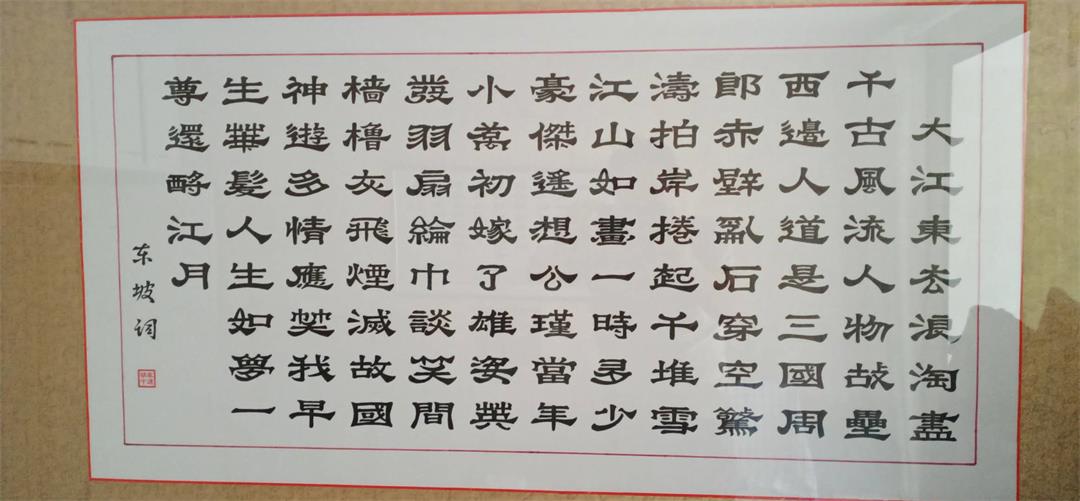 大江東去浪淘盡
千古風流人物故壘
西邊人道是三國周
郎赤壁亂石穿空驚
濤拍岸捲起千堆雪
江山如畫一時多少
豪傑遙想公瑾當年
小喬初嫁了雄姿英
發羽扇綸巾談笑間
檣櫓灰飛煙滅故國
神遊多情應笑我早
生華髮人生如夢一
尊還酹江月
东坡词